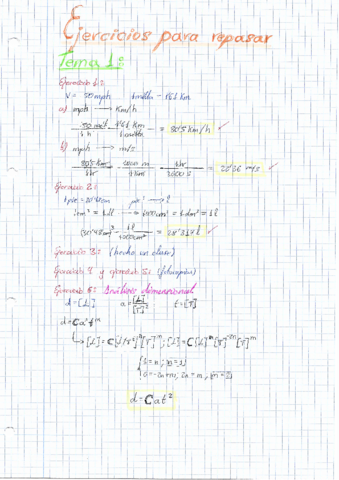 Ejercicios para repasar
Tema 1:
Ejercicio 1:
V = 50 mph 1 milla - 1'61 Km
a) mph → Km/h
50 mill/1 h · 1'61 Km/1 milla = 80'5 Km/h
b) mph → m/s
80'5 Km/1hr · 1000 m/1 Km · 1hr/3600 s = m/s
Ejercicio 2:
1 pie = 30'48cm pie³ → l
1dm³ = 1l → 1000cm³ = 1dm³ = 1l
(30'48cm)³ · 1l/1000cm³ = 28'317 l
Ejercicio 3: (hecho en clase)
Ejercicio 4 y ejercicio 5: (fotocopias)
Ejercicio 6: Análisis dimensional
d = [L] a = [L]/[T]² t = [T]
d = C aⁿ tᵐ
d = C a t²